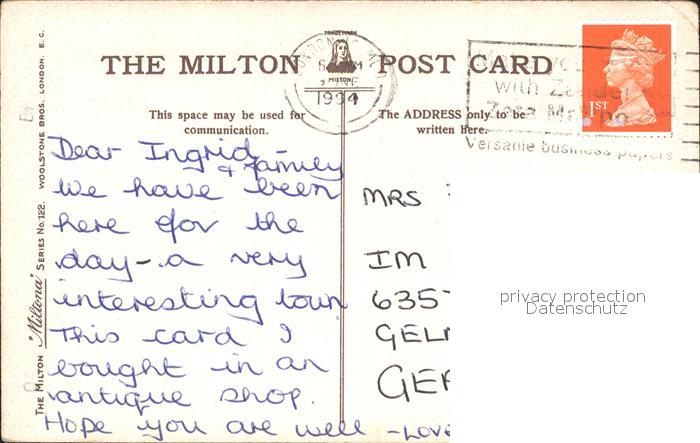 THE MILTON POST CARD
TRADE MARK
MILTON
LONDON
1994
with
Versatile business papers
1ST
This space may be used for
communication.
The ADDRESS only to be
written here.
THE MILTON "Miltona" SERIES No. 122. WOOLSTONE BROS. LONDON. E. C.
Dear Ingrid -
& family
We have been
here for the
day - a very
interesting town
This card I
bought in an
antique shop.
Hope you are well - Love
MRS
IM
635
GEL
GE
privacy protection
Datenschutz